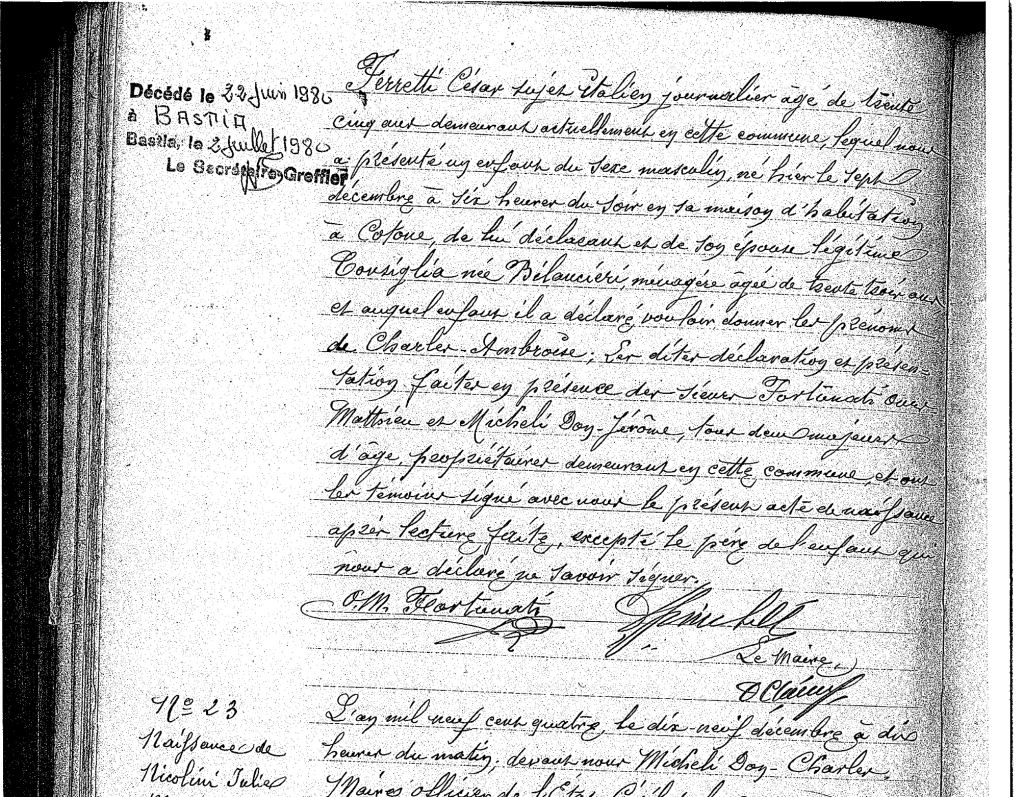 Décédé le 22 Juin 1980
à BASTIA
Bastia, le 2 juillet 1980
Le Secrétaire-Greffier
Ferretti César sujet italien, journalier âgé de trente
cinq ans demeurant actuellement en cette commune, lequel nous
a présenté un enfant du sexe masculin, né hier le sept
décembre à six heures du soir en sa maison d'habitation
à Cotone, de lui déclarant et de son épouse légitime
Consiglia née Bélanciéri, ménagère âgée de trente trois ans
et auquel enfant il a déclaré vouloir donner les prénoms
de Charles-Ambroise; Les dites déclaration et présen=
tation faites en présence des sieurs Fortunati Ours-
Mathieu et Micheli Don-Jérôme, tous deux majeurs
d'âge, propriétaires demeurant en cette commune, et ont
les témoins signé avec nous le présent acte de naissance
après lecture faite, excepté le père de l'enfant qui
nous a déclaré ne savoir signer.
O.M. Fortunati
Le Maire,
Nº 23
Naissance de
Nicolini Julie
L'an mil neuf cent quatre, le dix-neuf décembre à dix
heures du matin, devant nous Micheli Don-Charles,
Maire officier de l'État Civil